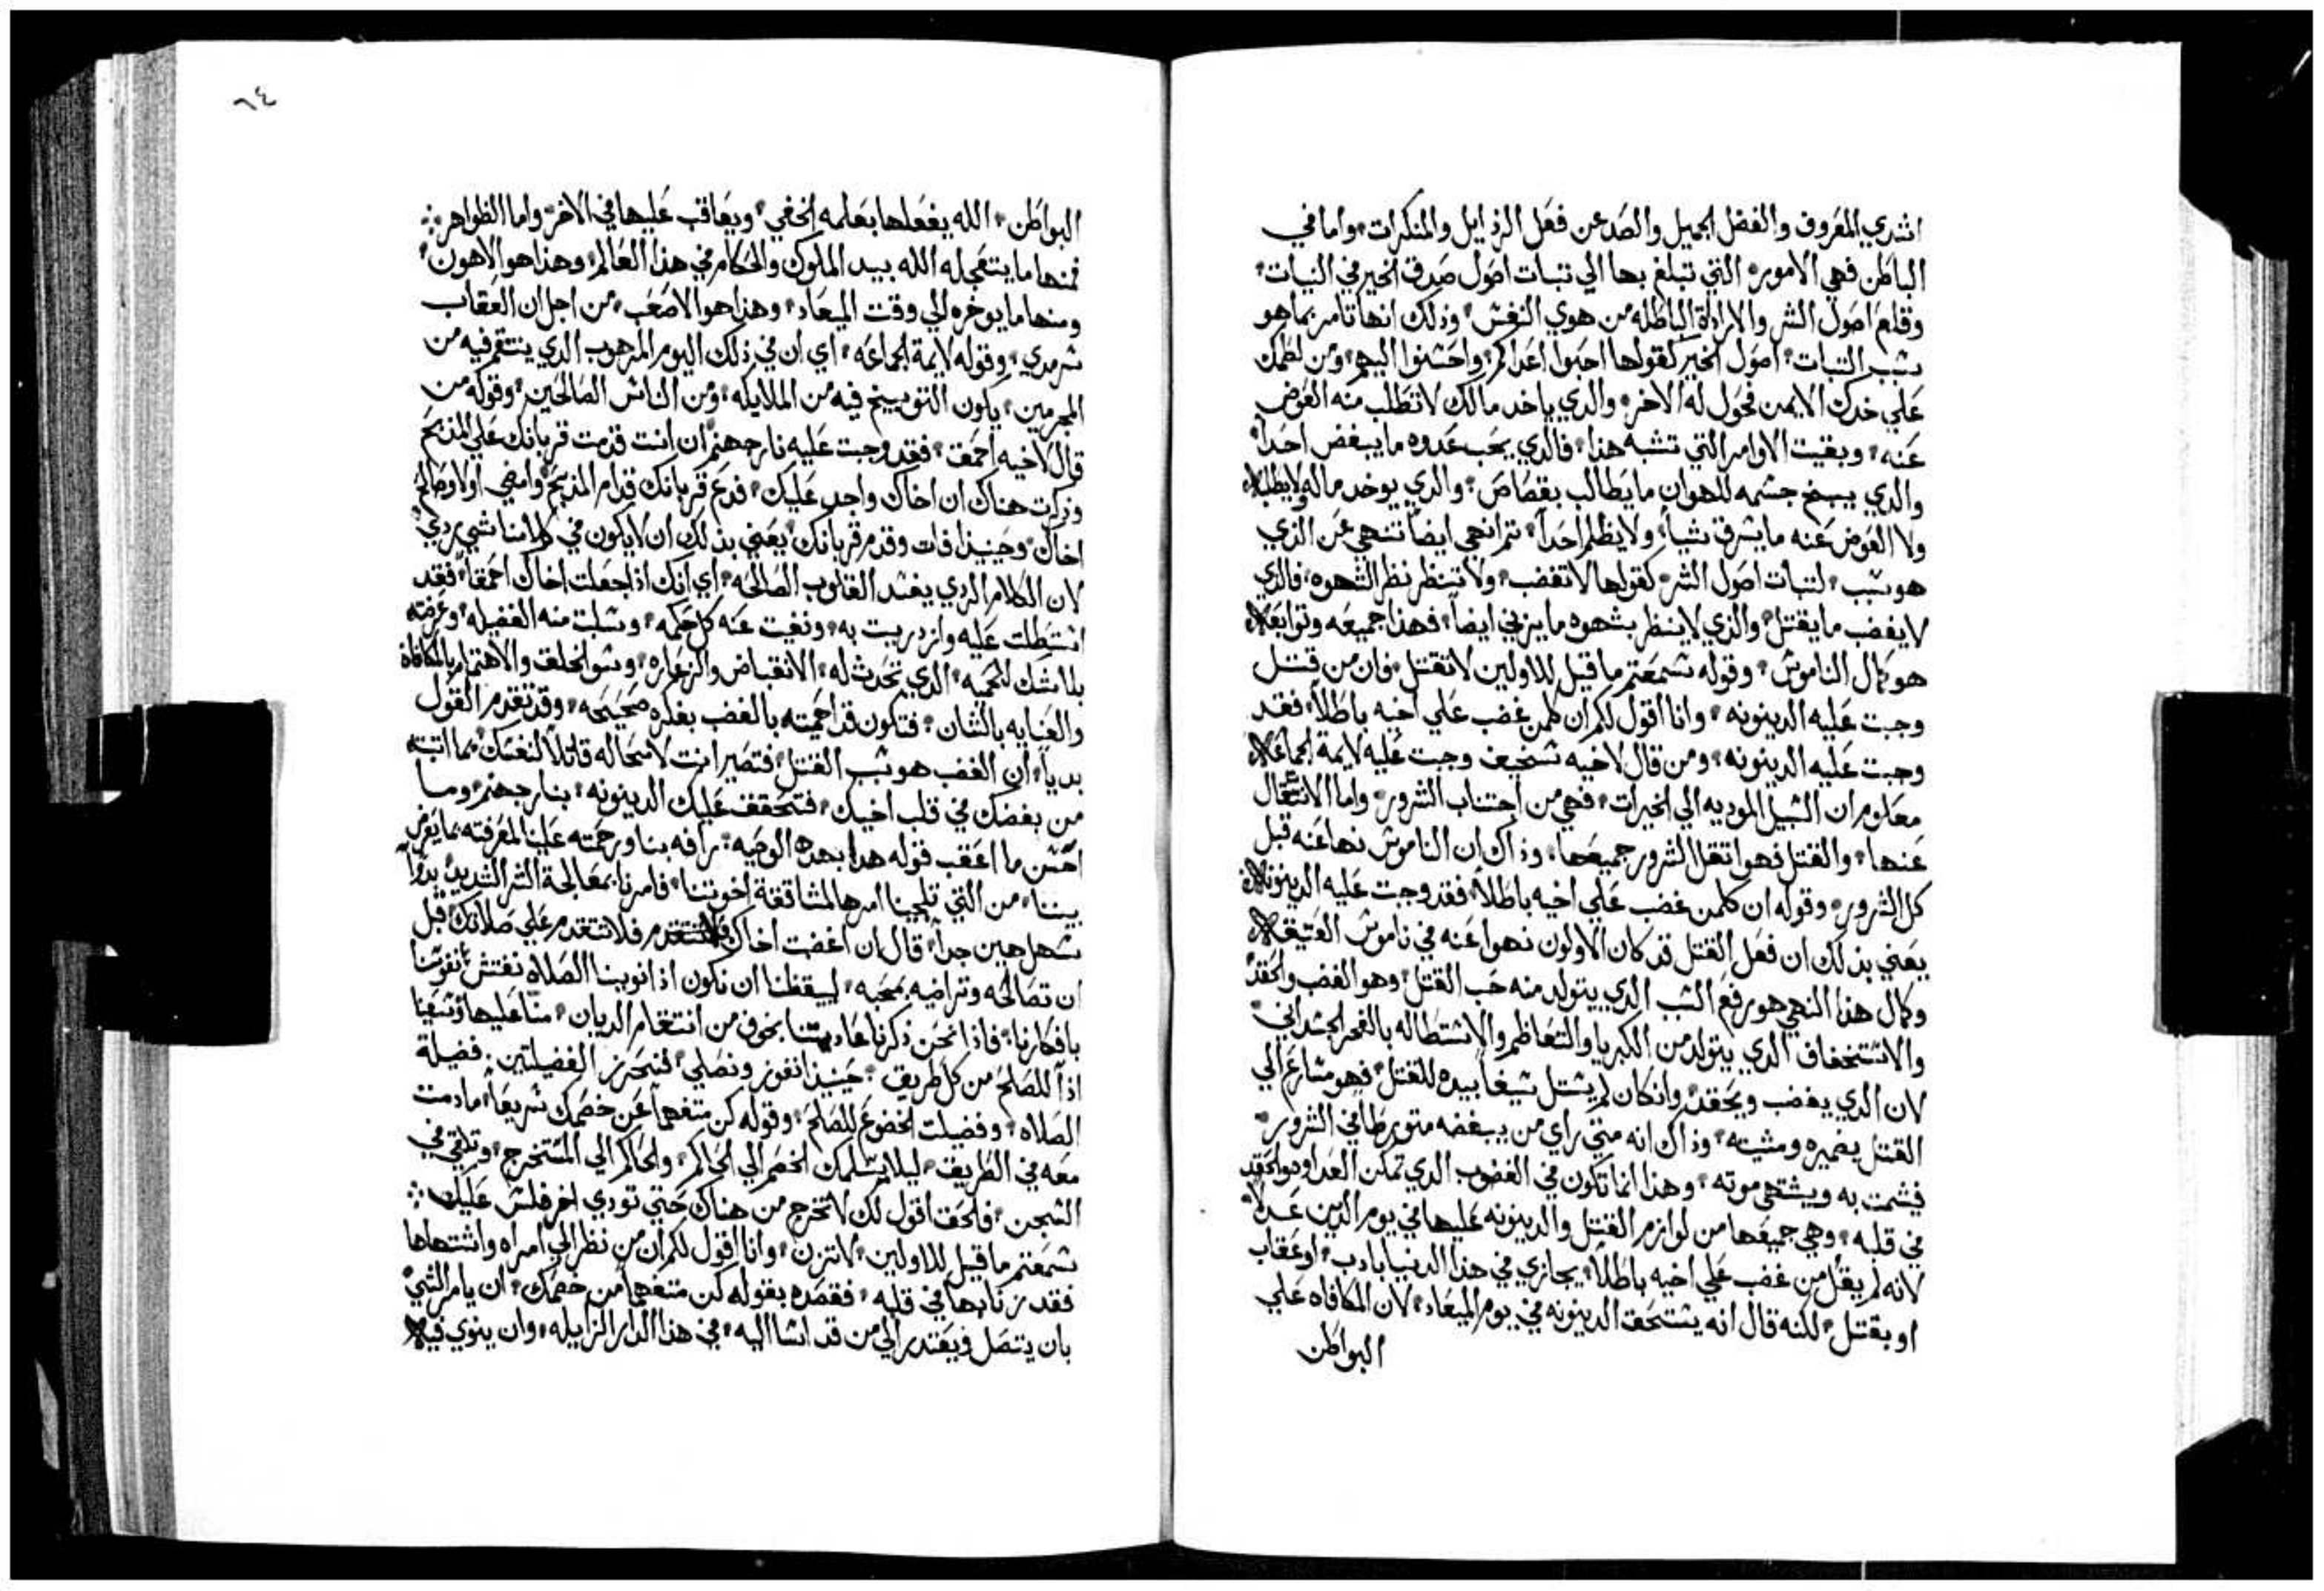 اشدي المعروف والفضل الجميل والصد عن فعل الرذايل والمنكرات، واما في
الباطن فهي الامور، التي تبلغ بها الي تبات اصول صدق الخير في النيات،
وقلع اصول الشر والارادة الباطله من هوي النفس، وذلك انها تامر بما هو
شبب التبات، اصول الخير كقولها احبوا اعداكم، واحشنوا اليهم، ومن لطمك
علي خدك الايمن فحول له الاخر، والدي ياخد مالك لا تطلب منه العوض
عنه، وبقيت الاوامر التي تشبه هدا، فالدي يحب عدوه ما يبغض احداً،
والدي يبيح جشمه للهوان ما يطالب بقصاص، والدي يوخد ماله ولا يطلبه
ولا العوض عنه ما يشرق شياً، ولا يظلم احداً، تم انهي ايضاً تنهي عن الذي
هو شبب، لتبات اصول الشر، كقولها لا تغضب، ولا تنظر نظر الشهوه، فالدي
لا يغضب ما يقتل، والذي لا ينظر بشهوه ما يزني ايضاً، فهدا جميعه وتوابعه
هو كمال الناموش، وقوله شمعتم ما قيل للاولين لا تقتل، فان من قتل
وجبت عليه الدينونه، وانا اقول لكم ان كلمن غضب علي اخيه باطلاً، فقد
وجبت عليه الدينونه، ومن قال لاخيه شخيف وجبت عليه لايمة الجماعه
معلوم ان الشبيل الموديه الي الخيرات، فهي من اجتناب الشرور، واما الانتقال
عنها، والقتل فهو اتقل الشرور جميعها، وذاك ان الناموش نها عنه قبل
كل الشرور، وقوله ان كلمن غضب علي اخيه باطلاً، فقد وجبت عليه الدينونه
يعني بذلك ان فعل القتل قد كان الاولون نهوا عنه في ناموش العتيقه
وكمال هذا النهي هو رفع الشبب الدي يتولد منه حب القتل، وهو الغضب والحقد
والاشتخفاف الدي يتولد من الكبريا والتعاظم والاشتطاله بالفخر الجشداني،
لان الدي يغضب ويحقد، وانكان لم يشتل شيفاً بيده للقتل، فهو مشارع الي
القتل بضميره ومشيته، وذاك انه متي راي من يبغضه متورطاً في الشرور،
فشمت به ويشتهي موته، وهدا انما تكون في الغضوب الدي تمكن العداوه والحقد
في قلبه، وهي جميعها من لوازم القتل والدينونه عليها في يوم الدين عدلاً،
لانه لم يقل من غضب علي اخيه باطلاً، يجازي في هدا الدنيا بادب، او عقاب
او بقتل، لكنه قال انه يشتحق الدينونه في يوم الميعاد، لان المكافاه علي
البواطن
٦٤
البواطن، الله يفعلها بعلمه الخفي، ويعاقب عليها في الاخر، واما الظواهر:
فمنها ما يتعجله الله بيد الملوك والحكام في هدا العالم، وهدا هو الاهون،
ومنها ما يوخره الي وقت الميعاد، وهدا هو الاصعب، من اجل ان العقاب
شرمدي، وقوله لايمة الجماعه، اي ان في ذلك اليوم المرهوب الدي ينتقم فيه من
المجرمين، يكون التوبييخ فيه من الملايكه، ومن الناش الصالحين، وقوله من
قال لاخيه احمق، فقد وجبت عليه نار جهنم، ان انت قدمت قربانك علي المذبح
وذكرت هناك ان اخاك واجد عليك، فدع قربانك قدام المذبح، وامضي اولا وصالح
اخاك، وحينيذا فات وقدم قربانك، يعني بذلك ان لا يكون في كلامنا شي ردي
لان الكلام الردي يفشد القلوب الصالحه، اي انك اذا جعلت اخاك احمقاً، فقد
اشتطلت عليه وازدريت به، ونفيت عنه كل حكمه، وشلبت منه الفضيله، وعرضته
بلا شك للحميه، الدي تحدث له، الانقباض والزعاره، وشو الخلق والاهتمام بالمكافاة
والعنايه بالشان، فتكون قد احميته بالغضب بفكره صحيحه، وقد تقدم القول
بدياً، ان الغضب هو شبب القتل، فتصير انت لا محاله قاتلاً لنفشك، بما اتبته
من بغضك في قلب اخيك، فتحقق عليك الدينونه، بنار جهنم، وما
احشن ما اعقب قوله هدا بهده الوصيه، رافه بنا ورحمته علينا لمعرفته بما يعرض
بيننا، من التي تلجينا امرها لمشاققة اخوتنا، فامرنا بمعالجة الشر الشديد، بدواً
شهل هين جداً، قال ان اغضبت اخاك فلا تتقدم علي صلاتك قبل
ان تصالحه وتراضيه بمحبه، ليبقظنا ان نكون اذا نوينا الصلاه نفتش نفوشنا
بافكارنا، فاذا نحن ذكرنا عاديتنا بخوف من انتقام الديان، منا عليها وشعينا
اذاً للصلح من كل طريق، حينيذا نفوز ونصلي، لنحرز الفضيلتين، فضيلة
الصلاه، وفضيلت الخضوع للصلح، وقوله كن متفهماً عن خصمك شريعاً، ما دمت
معه في الطريق، ليلا يشلمك الخصم الي الحاكم، والحاكم الي المشتخرج، وتلقي في
الشجن، فالحق اقول لك لا تخرج من هناك حتي تودي اخر فلش عليك:
شمعتم ما قيل للاولين، لا تزن، وانا اقول لكم ان من نظر الي امراه واشتهاها
فقد زنا بها في قلبه، فقصده بقوله كن متفهماً من خصمك، ان يامر الشي
بان يتصل ويعتدر الي من قد اشا اليه، في هدا الدار الزايله، وان ينوي فيها